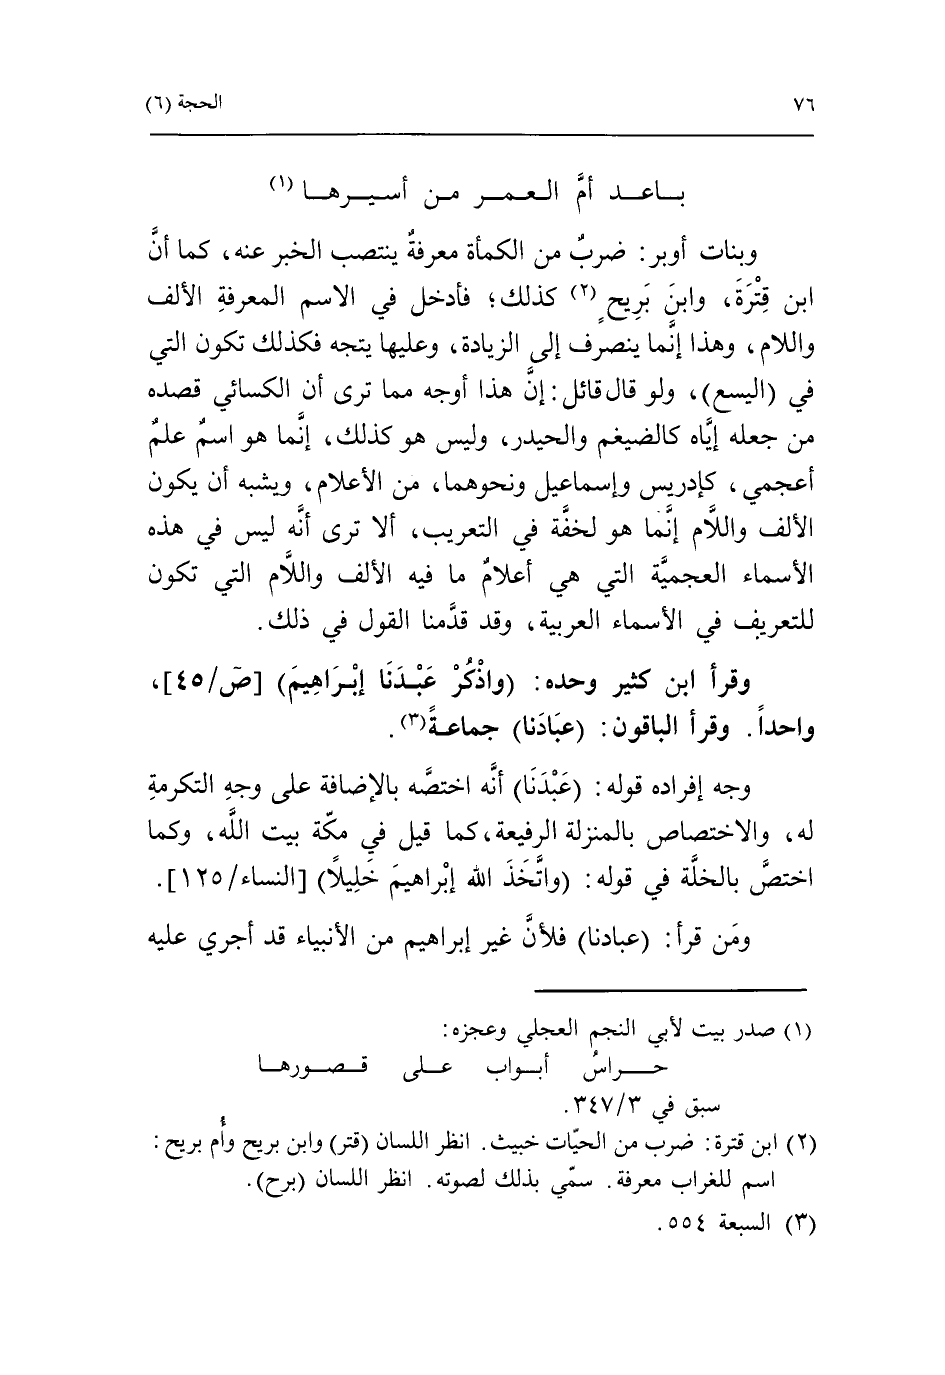 ٧٦ الحجة (٦)
بـاعـد أمَّ الـعـمـر مـن أسـيـرهـا (١)
وبنات أوبر: ضربٌ من الكمأة معرفةٌ ينتصب الخبر عنه، كما أنَّ
ابن قِتْرَةَ، وابنَ بَرِيحٍ (٢) كذلك؛ فأدخل في الاسم المعرفةِ الألف
واللام، وهذا إنَّما ينصرف إلى الزيادة، وعليها يتجه فكذلك تكون التي
في (اليسع)، ولو قال قائل: إنَّ هذا أوجه مما ترى أن الكسائي قصده
من جعله إيَّاه كالضيغم والحيدر، وليس هو كذلك، إنَّما هو اسمٌ علمٌ
أعجمي، كإدريس وإسماعيل ونحوهما، من الأعلام، ويشبه أن يكون
الألف واللَّام إنَّما هو لخفَّة في التعريب، ألا ترى أنَّه ليس في هذه
الأسماء العجميَّة التي هي أعلامٌ ما فيه الألف واللَّام التي تكون
للتعريف في الأسماء العربية، وقد قدَّمنا القول في ذلك.
وقرأ ابن كثير وحده: (واذْكُرْ عَبْدَنَا إبْرَاهِيمَ) [صَ/٤٥]،
واحداً. وقرأ الباقون: (عبَادَنا) جماعةً(٣).
وجه إفراده قوله: (عَبْدَنَا) أنَّه اختصَّه بالإضافة على وجهِ التكرمةِ
له، والاختصاص بالمنزلة الرفيعة، كما قيل في مكّة بيت اللَّه، وكما
اختصَّ بالخلَّة في قوله: (واتَّخَذَ الله إبْراهيمَ خَلِيلاً) [النساء/١٢٥].
ومَن قرأ: (عبادنا) فلأنَّ غير إبراهيم من الأنبياء قد أجري عليه
(١) صدر بيت لأبي النجم العجلي وعجزه:
حــراسُ أبـواب عـلى قـصـورهـا
سبق في ٣٤٧/٣.
(٢) ابن قترة: ضرب من الحيّات خبيث. انظر اللسان (قتر) وابن بريح وأُم بريح:
اسم للغراب معرفة. سمّي بذلك لصوته. انظر اللسان (برح).
(٣) السبعة ٥٥٤.